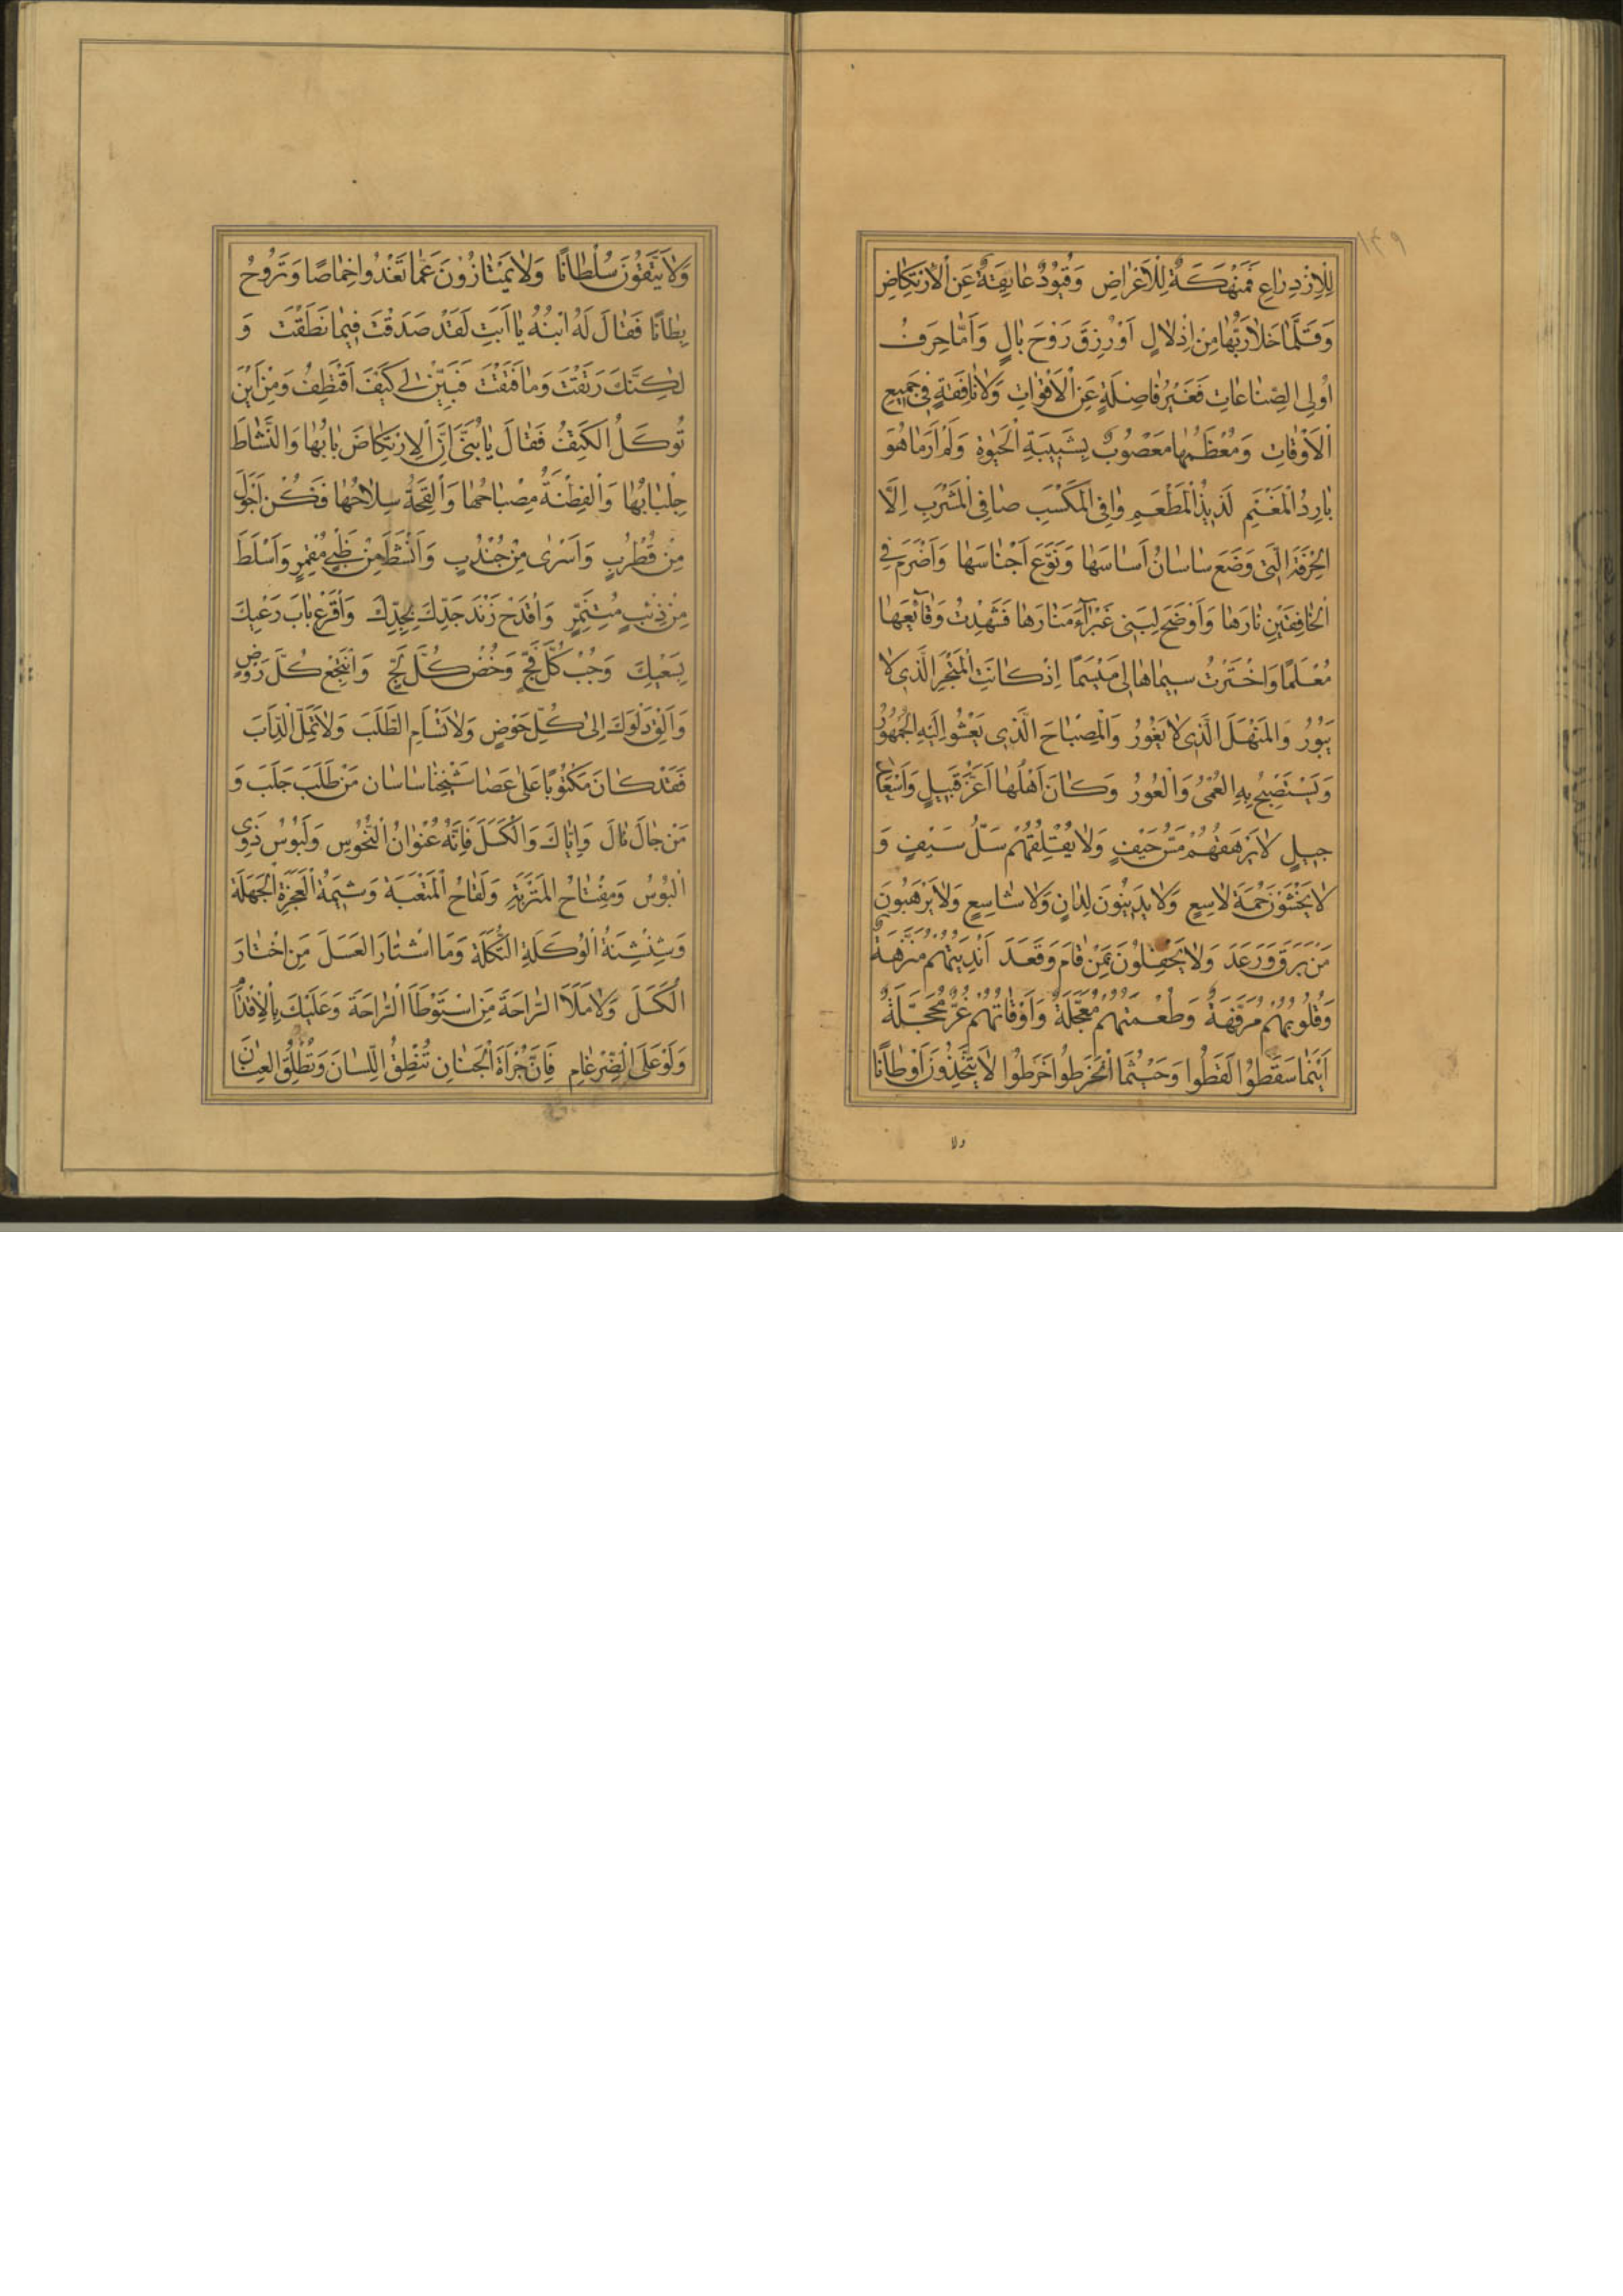 ١٤٩
لِلْاِزْدِرَاعِ فَمَنْهَكَةٌ لِلْاَعْرَاضِ وَقُيُودٌ عَائِقَةٌ عَنِ الْاِرْتِكَاضِ
وَقَلَّمَا خَلَا رَبُّهَا مِنْ اِذْلَالٍ اَوْ رُزِقَ رَوْحَ بَالٍ وَاَمَّا حِرَفُ
اُولِى الصِّنَاعَاتِ فَغَيْرُ فَاضِلَةٍ عَنِ الْاَقْوَاتِ وَلَا نَافِقَةٍ فِى جَمِيعِ
الْاَوْقَاتِ وَمُعْظَمُهَا مَعْصُوبٌ بِشَبِيبَةِ الْحَيٰوةِ وَلَمْ اَرَ مَا هُوَ
بَارِدُ الْمَغْنَمِ لَذِيذُ الْمَطْعَمِ وَافِى الْمَكْسَبِ صَافِى الْمَشْرَبِ اِلَّا
الْحِرْفَةَ الَّتِى وَضَعَ سَاسَانُ اَسَاسَهَا وَنَوَّعَ اَجْنَاسَهَا وَاَضْرَمَ فِى
الْخَافِقَيْنِ نَارَهَا وَاَوْضَحَ لِبَنِى غَبْرَآءَ مَنَارَهَا فَشَهِدْتُ وَقَائِعَهَا
مُعْلَمًا وَاخْتَرْتُ سِيمَاهَا لِى مَيْسَمًا اِذْ كَانَتِ الْمَتْجَرَ الَّذِى لَا
يَبُورُ وَالْمَنْهَلَ الَّذِى لَا يَغُورُ وَالْمِصْبَاحَ الَّذِى يَعْشُو اِلَيْهِ الْجُمْهُورُ
وَيَسْتَصْبِحُ بِهِ الْعُمْىُ وَالْعُورُ وَكَانَ اَهْلُهَا اَعَزَّ قَبِيلٍ وَاَسْعَدَ
جِيلٍ لَا يَرْهَقُهُمْ مَسُّ حَيْفٍ وَلَا يُقْلِقُهُمْ سَلُّ سَيْفٍ وَ
لَا يَخْشَوْنَ حُمَةَ لَاسِعٍ وَلَا يَدِينُونَ لِدَانٍ وَلَا شَاسِعٍ وَلَا يَرْهَبُونَ
مَنْ بَرَقَ وَرَعَدَ وَلَا يَحْفِلُونَ بِمَنْ قَامَ وَقَعَدَ اَنْدِيَتُهُمْ مُنَزَّهَةٌ
وَقُلُوبُهُمْ مُرَفَّهَةٌ وَطُعْمَتُهُمْ مُعَجَّلَةٌ وَاَوْقَاتُهُمْ غُرٌّ مُحَجَّلَةٌ
اَيْنَمَا سَقَطُوا لَقَطُوا وَحَيْثُمَا انْخَرَطُوا خَرَطُوا لَا يَتَّخِذُونَ اَوْطَانًا
ولا
وَلَا يَتَّقُونَ سُلْطَانًا وَلَا يَمْتَازُونَ عَمَّا تَغْدُوا خِمَاصًا وَتَرُوحُ
بِطَانًا فَقَالَ لَهُ ابْنُهُ يَا اَبَتِ لَقَدْ صَدَقْتَ فِيمَا نَطَقْتَ وَ
لٰكِنَّكَ رَتَقْتَ وَمَا فَتَقْتَ فَبَيِّنْ لِى كَيْفَ اَقْتَطِفُ وَمِنْ اَيْنَ
تُوكَلُ الْكَتِفُ فَقَالَ يَا بُنَىَّ اِنَّ الْاِرْتِكَاضَ بَابُهَا وَالنَّشَاطَ
جِلْبَابُهَا وَالْفِطْنَةَ مِصْبَاحُهَا وَالْقِحَةَ سِلَاحُهَا فَكُنْ اَجْوَلَ
مِنْ قُطْرُبٍ وَاَسْرٰى مِنْ جُنْدُبٍ وَاَنْشَطَ مِنْ ظَبْىٍ مُقْمِرٍ وَاَسْلَطَ
مِنْ ذِئْبٍ مُتَنَمِّرٍ وَاقْدَحْ زَنْدَ جَدِّكَ بِجِدِّكَ وَاقْرَعْ بَابَ رَعْيِكَ
بِسَعْيِكَ وَجُبْ كُلَّ فَجٍّ وَخُضْ كُلَّ لُجٍّ وَانْتَجِعْ كُلَّ رَوْضٍ
وَاَلْقِ دَلْوَكَ اِلٰى كُلِّ حَوْضٍ وَلَا تَسْأَمِ الطَّلَبَ وَلَا تَمَلَّ الدَّأَبَ
فَقَدْ كَانَ مَكْتُوبًا عَلٰى عَصَا شَيْخِنَا سَاسَان مَنْ طَلَبَ جَلَبَ وَ
مَنْ جَالَ نَالَ وَاِيَّاكَ وَالْكَسَلَ فَاِنَّهُ عُنْوَانُ النُّحُوسِ وَلَبُوسُ ذَوِى
الْبُوسُ وَمِفْتَاحُ الْمَتْرَبَةِ وَلَقَاحُ الْمَتْعَبَةِ وَشِيمَةُ الْعَجَزَةِ الْجَهَلَةِ
وَشِنْشِنَةُ الْوُكَلَةِ التُّكَلَةِ وَمَا اشْتَارَ الْعَسَلَ مَنِ اخْتَارَ
الْكَسَلَ وَلَا مَلَأَ الرَّاحَةَ مَنِ اسْتَوْطَأَ الرَّاحَةَ وَعَلَيْكَ بِالْاِقْدَامِ
وَلَوْ عَلَى الضِّرْغَامِ فَاِنَّ جُرْأَةَ الْجَنَانِ تُنْطِقُ اللِّسَانَ وَتُطْلِقُ الْعِنَانَ